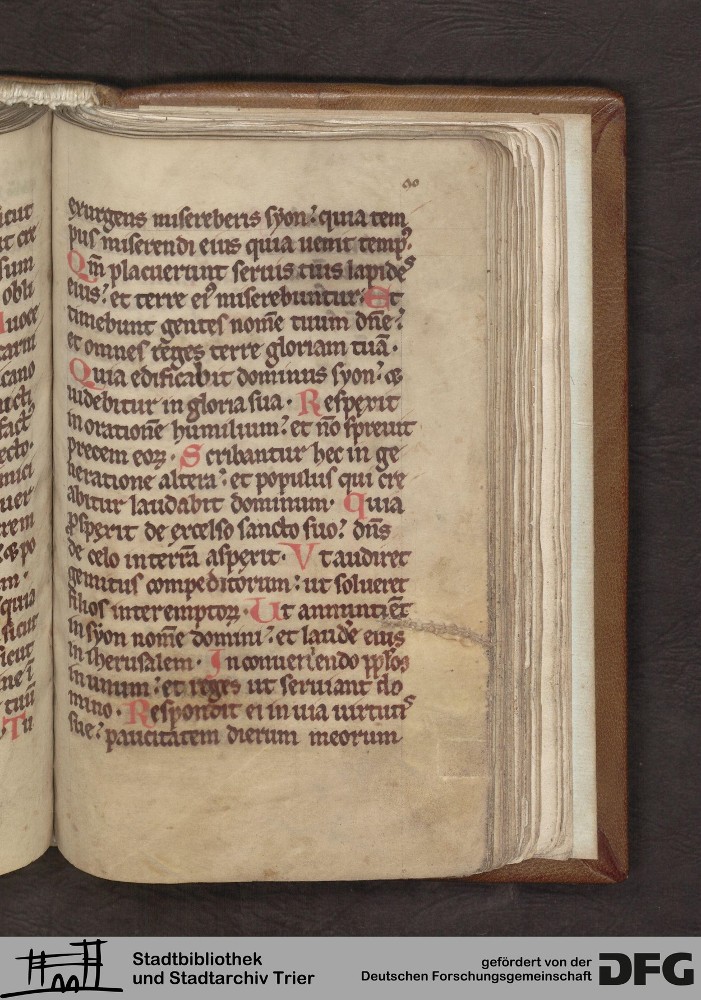 90
exurgens misereberis syon: quia tem
pus miserendi eius quia uenit temp⁹.
Qm̄ placuerunt seruis tuis lapides
eius: et terre ei⁹ miserebuntur. Et
timebunt gentes nom̄e tuum dn̄e:
et omnes reges terre gloriam tuā.
Quia edificabit dominus syon: &
uidebitur in gloria sua. Respexit
in oration̄e humilium: et nō spreuit
precem eoꝝ. Scribantur hec in ge
neratione altera: et populus qui cre
abitur laudabit dominum. Quia
ꝓspexit de excelso sancto suo: dn̄s
de celo in terrā aspexit. Vt audiret
gemitus compeditorum: ut solueret
filios interemptoꝝ. Ut annuntiēt
in syon nom̄e domini: et laudē eius
in iherusalem. In conueniendo ppl̄os
in unum: et reges ut seruiant do
mino. Respondit ei in uia uirtutis
sue: paucitatem dierum meorum
Stadtbibliothek
und Stadtarchiv Trier
gefördert von der
Deutschen Forschungsgemeinschaft
DFG